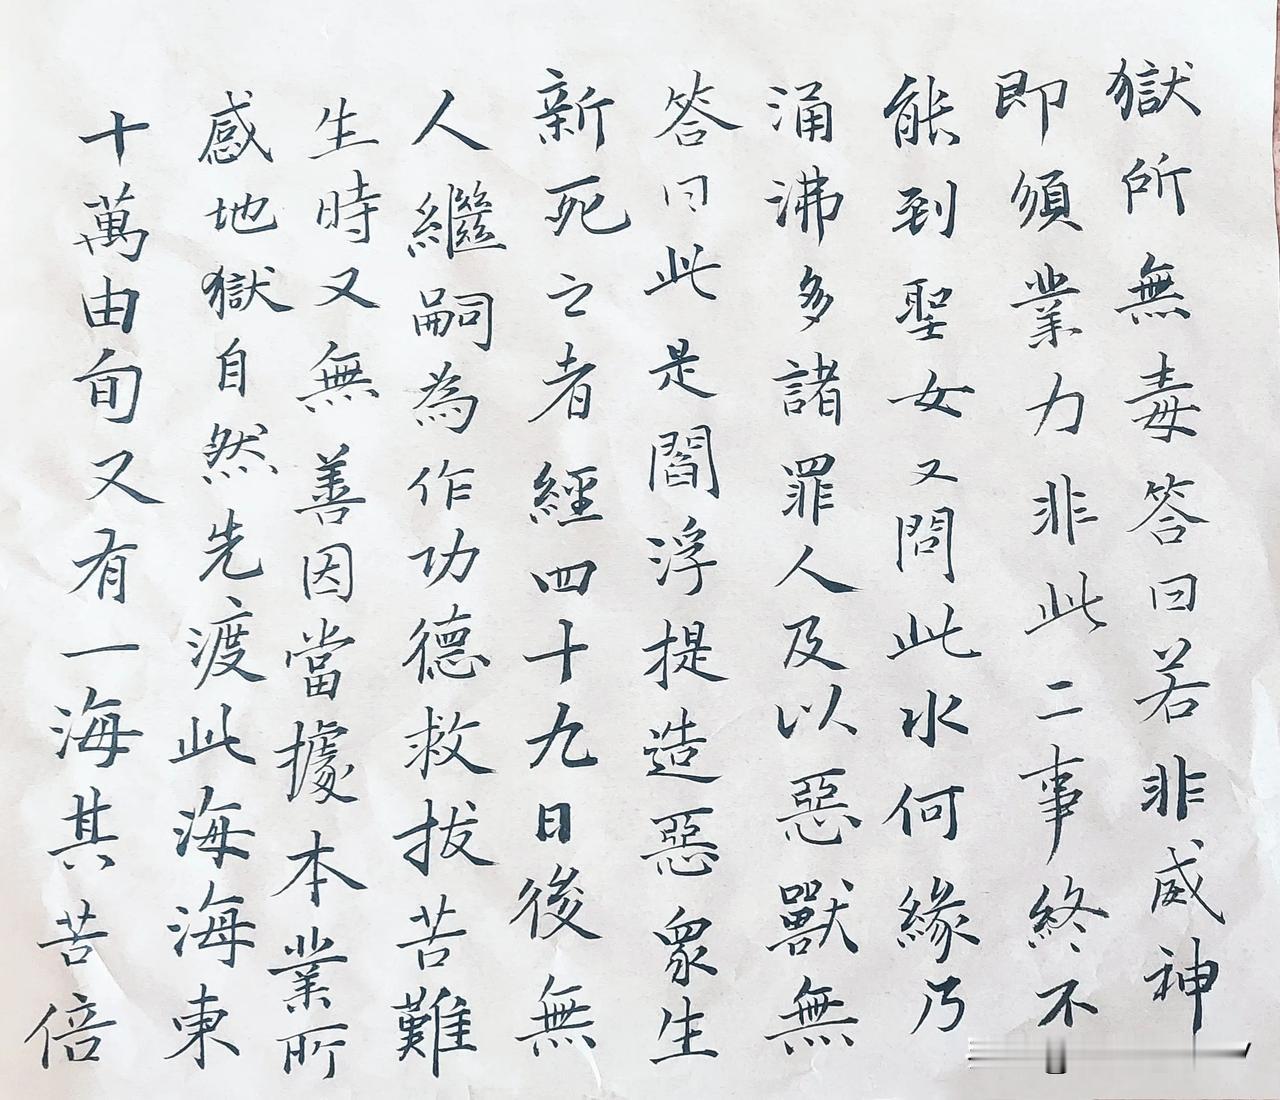 獄所無毒答曰若非威神
即須業力非此二事終不
能到聖女又問此水何緣乃
涌沸多諸罪人及以惡獸無
答曰此是閻浮提造惡眾生
新死之者經四十九日後無
人繼嗣為作功德救拔苦難
生時又無善因當據本業所
感地獄自然先渡此海海東
十萬由旬又有一海其苦倍